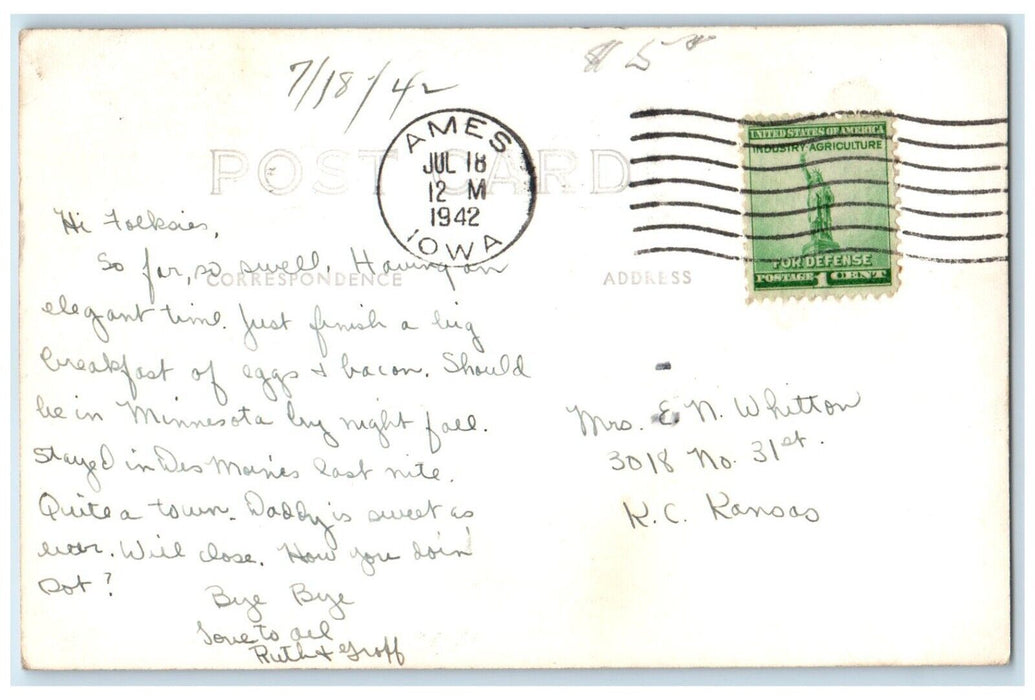 7/18/42
$5
POST CARD
AMES
JUL 18
12 M
1942
IOWA
UNITED STATES OF AMERICA
INDUSTRY AGRICULTURE
FOR DEFENSE
POSTAGE 1 CENT
CORRESPONDENCE
ADDRESS
Hi Folksies,
So far, so swell. Having an
elegant time. Just finish a big
breakfast of eggs + bacon. Should
be in Minnesota by night fall.
Stayed in Des Moines last nite.
Quite a town. Daddy is sweet as
ever. Will close. How you doin'
Dot?
Bye Bye
Love to all
Ruth + Groff
Mrs. E. N. Whitton
3018 No. 31st.
K.C. Kansas